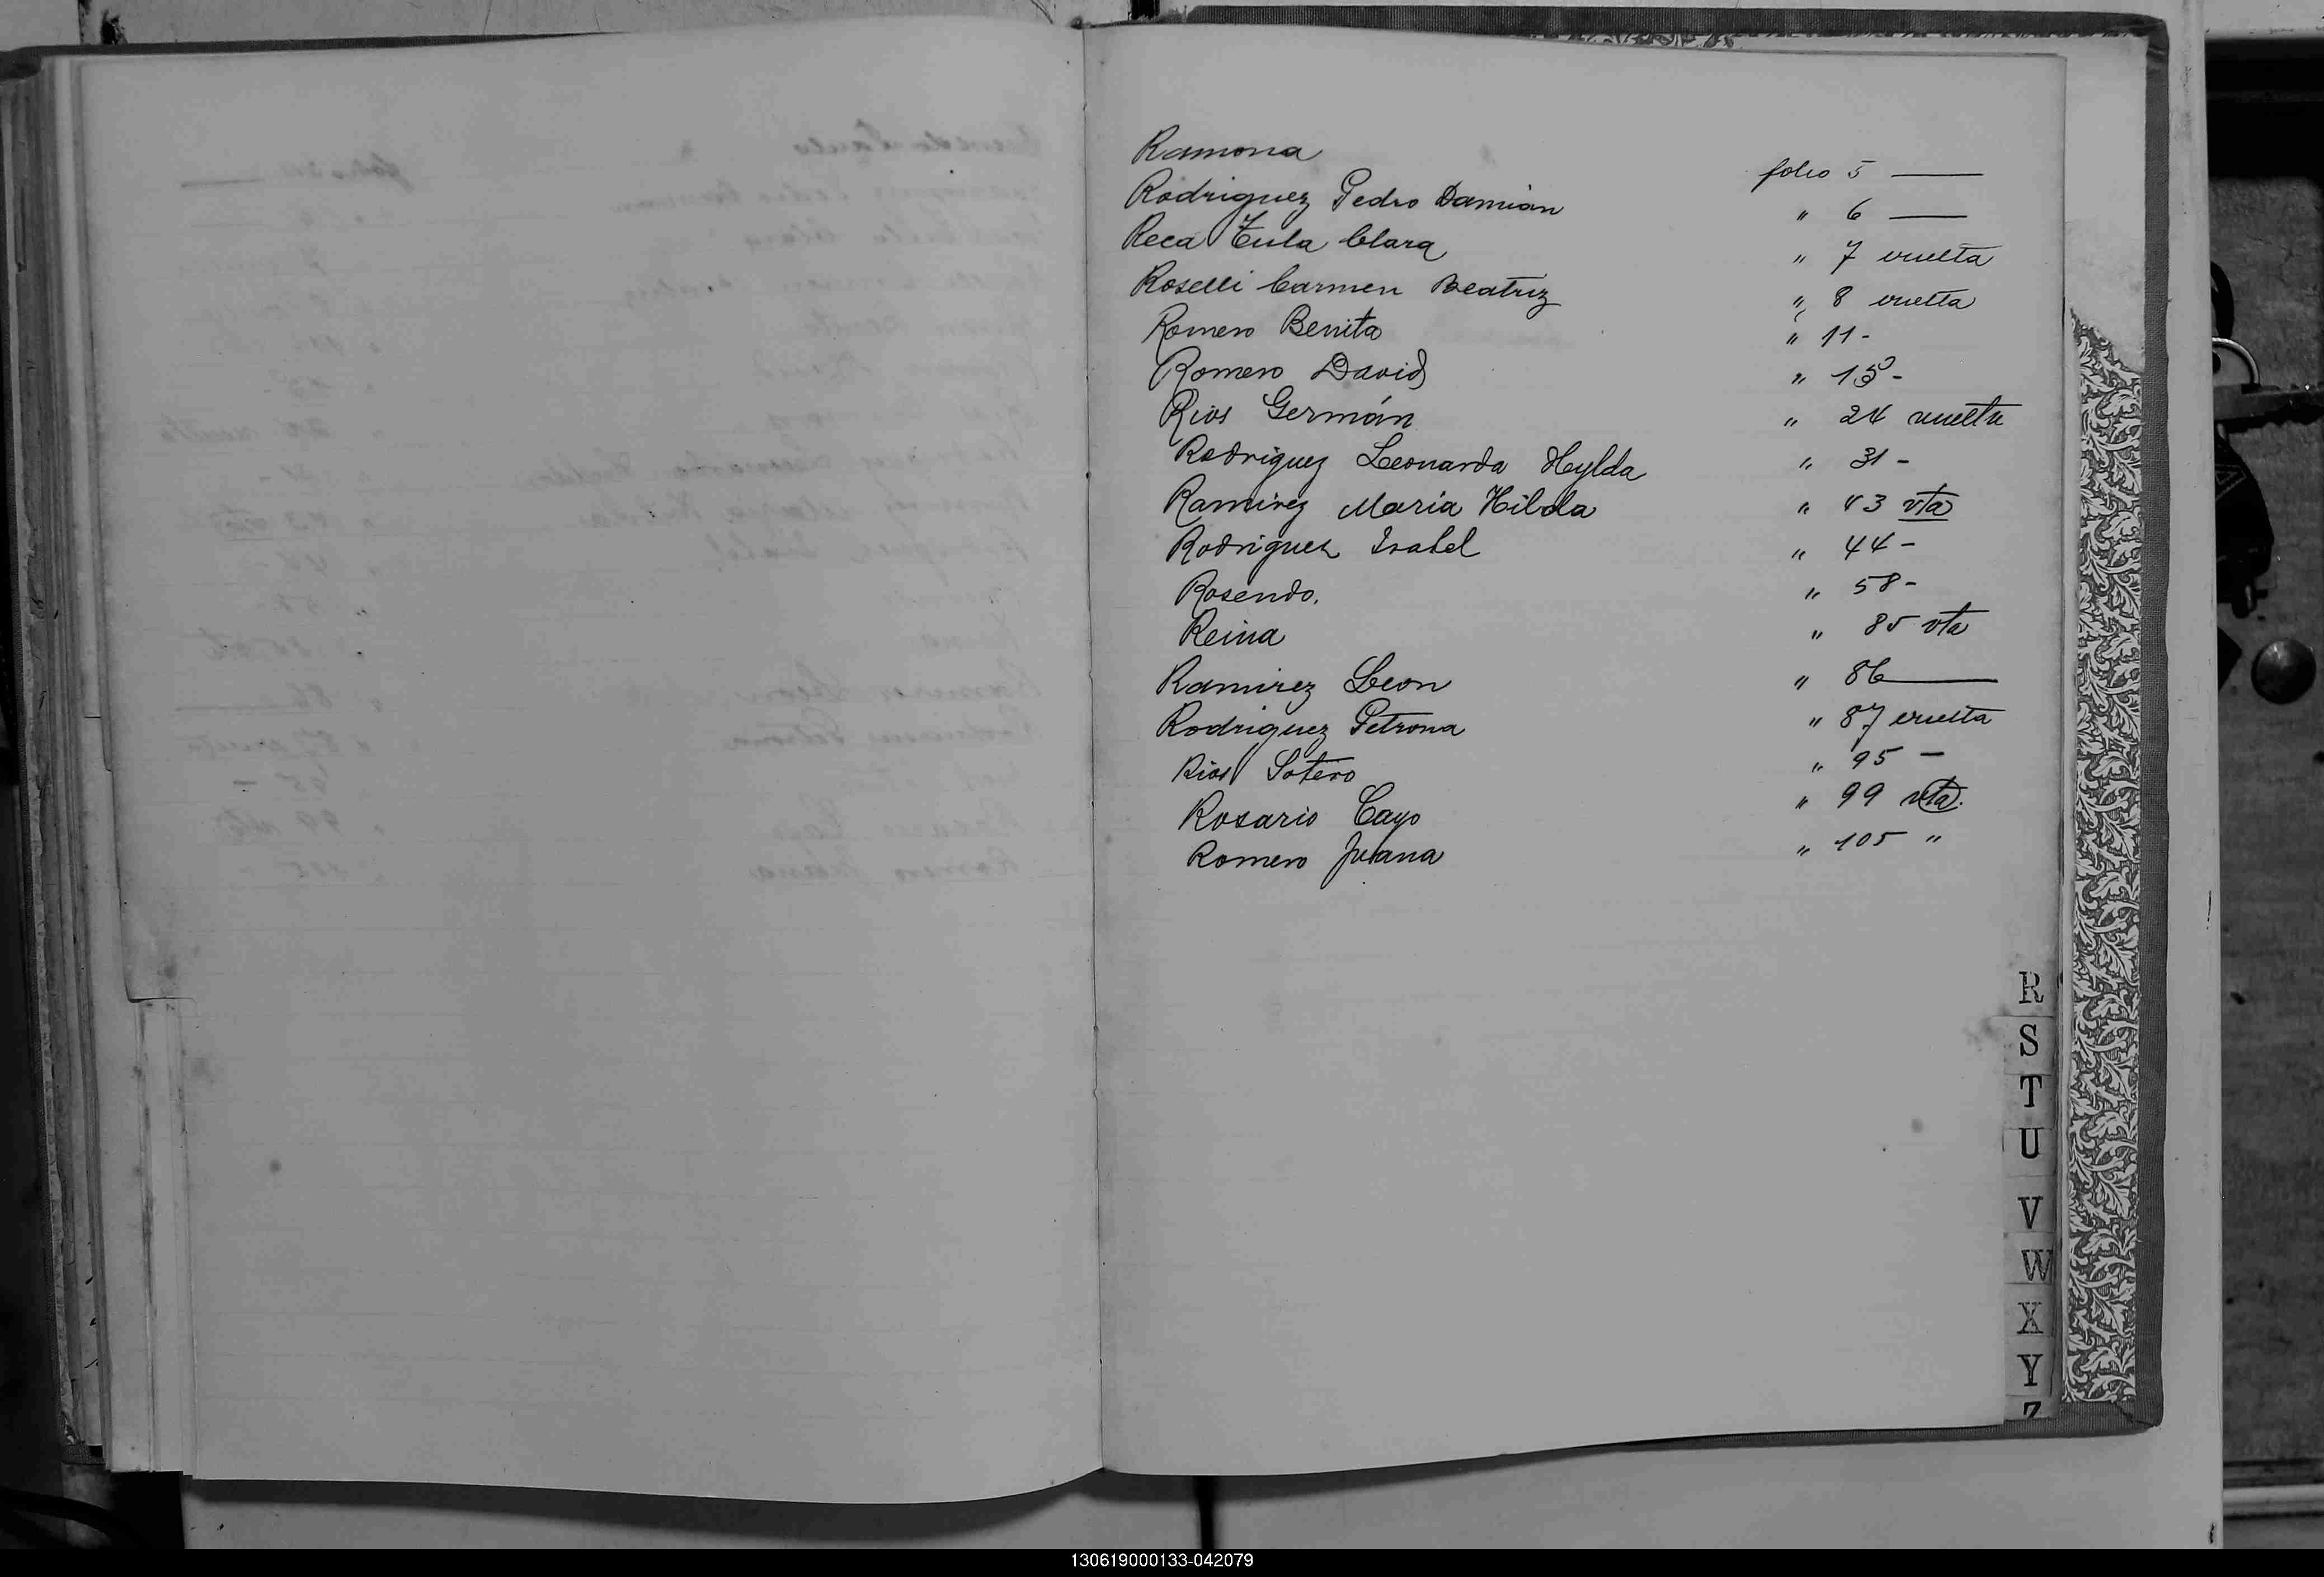 Ramona folio 5 —
Rodriguez Pedro Damián " 6 —
Reca Tula Clara " 7 vuelta
Roselli Carmen Beatriz " 8 vuelta
Romero Benita " 11 -
Romero David "
Rios Germán " 24 vuelta
Rodriguez Leonarda Hylda " 31 -
Ramirez Maria Hilda " 43 vta
Rodriguez Isabel " 44 -
Rosendo. " 58 -
Reina " 85 vta
Ramirez Leon " 86 —
Rodriguez Petrona " 87 vuelta
Rios Sotero " 95 —
Rosario Cayo " 99 vta.
Romero Juana " 105 "
R
S
T
U
V
W
X
Y
Z
130619000133-042079